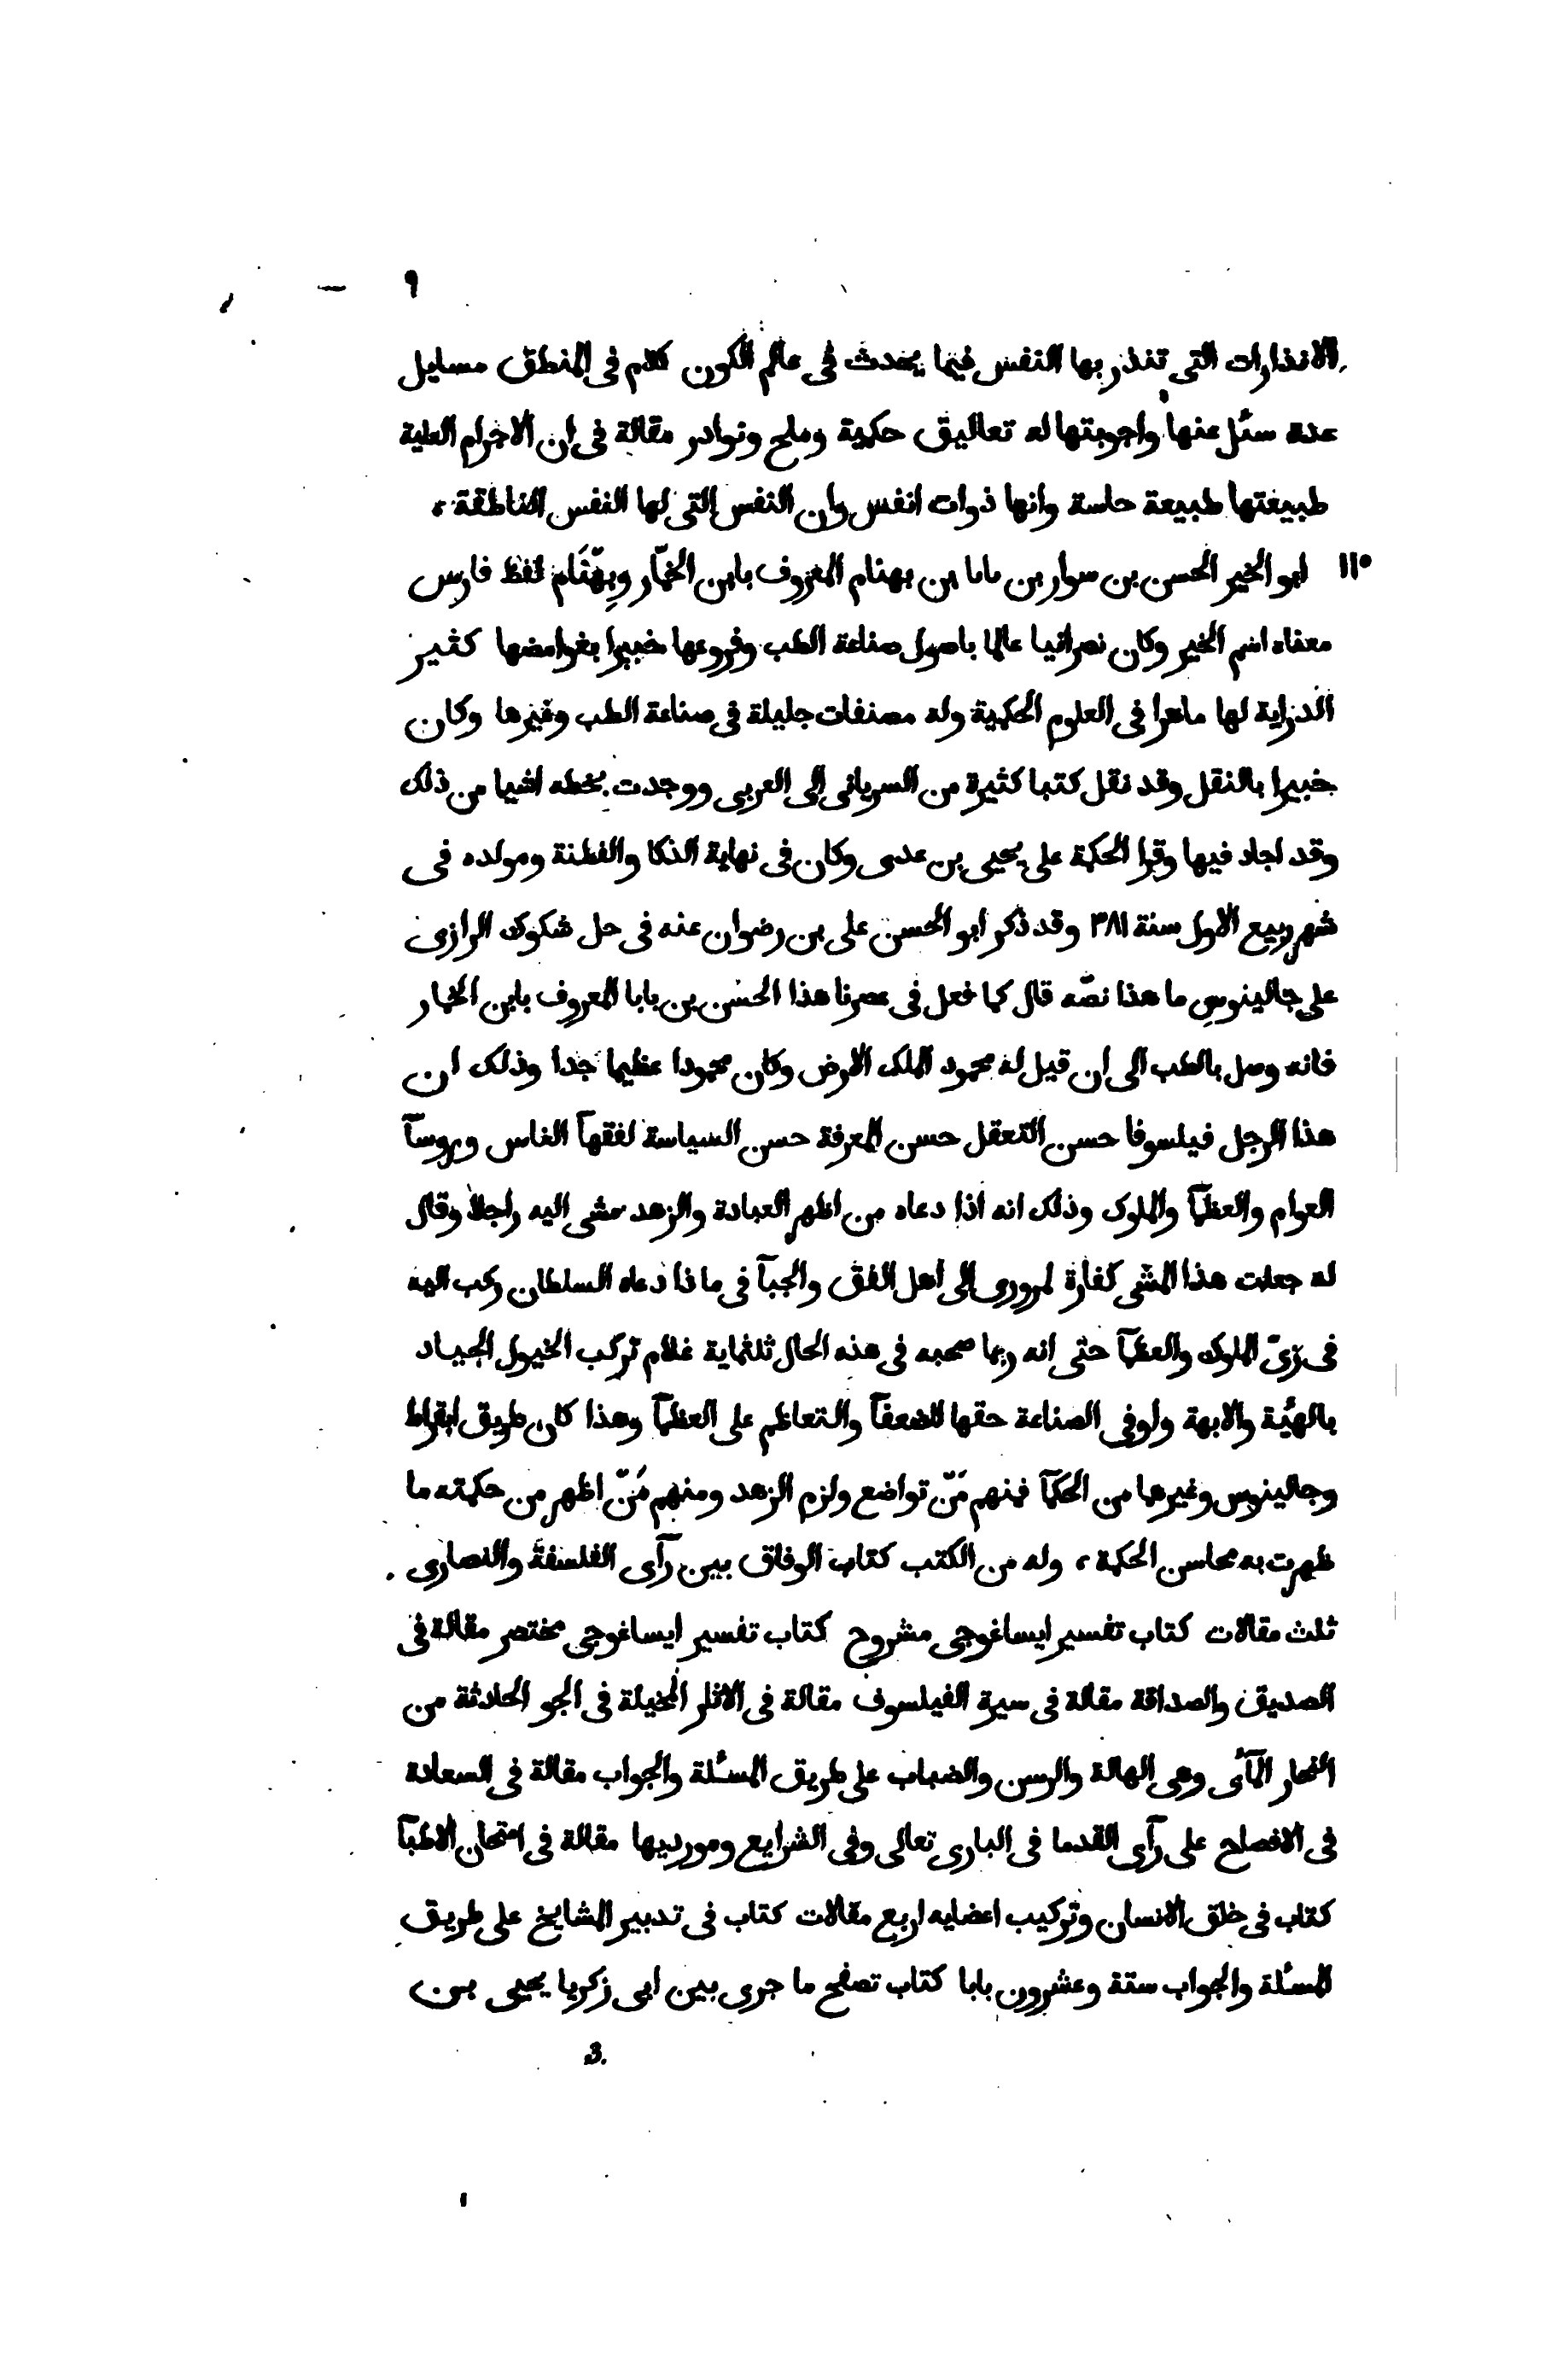 ٩
الانذارات التى تنذر بها النفس فيما يحدث فى عالم الكون كلام فى المنطق مسايل
عدة سئل عنها واجوبتها له تعاليق حكمية وملح ونوادر مقالة فى ان الاجرام العلية
طبيعتها طبيعة حاسة وانها ذوات انفس وان النفس التى لها النفس الناطقة،
١١٠ ابو الخير الحسن بن سوار بن بابا بن بهنام المعروف بابن الخمّار وبِهْنَام لفظ فارسى
معناه اسم الخير وكان نصرانيا عالما باصول صناعة الطب وفروعها خبيرا بغوامضها كثير
الدراية لها ماهرا فى العلوم الحكمية وله مصنفات جليلة فى صناعة الطب وغيرها وكان
خبيرا بالنقل وقد نقل كتبا كثيرة من السريانى الى العربى ووجدت بخطه اشيا من ذلك
وقد اجاد فيها وقرا الحكمة على يحيى بن عدى وكان فى نهاية الذكا والفطنة ومولده فى
شهر ربيع الاول سنة ٣٨١ وقد ذكر ابو الحسن على بن رضوان عنه فى حل شكوك الرازى
على جالينوس ما هذا نصّه قال كما فعل فى عصرنا هذا الحسن بن بابا المعروف بابن الخمار
فانه وصل بالطب الى ان قيل له محمود الملك الارض وكان محمودا عظيما جدا وذلك ان
هذا الرجل فيلسوفا حسن التعقل حسن المعرفة حسن السياسة لفقهآ الناس وروسآ
العوام والعظمآ والملوك وذلك انه اذا دعاه من اظهر العبادة والزهد مشى اليه راجلا وقال
له جعلت هذا المشى كفارة لمرورى الى اهل الفسق والجبآ فى ما ذا دعاه السلطان ركب اليه
فى زىّ الملوك والعظمآ حتى انه ربما صحبه فى هذه الحال ثلثماية غلام تركب الخيول الجياد
بالهئية والابهة ولوفى الصناعة حقها للضعفآ والتعاظم على العظمآ وهذا كان طريق ابقراط
وجالينوس وغيرهما من الحكمآ فمنهم مَنّ تواضع ولزم الزهد ومنهم مَنّ اظهر من حكمته ما
ظهرت به محاسن الحكمة، وله من الكتب كتاب الوفاق بين رآى الفلسفة والنصارى
ثلث مقالات كتاب تفسير ايساغوجى مشروح كتاب تفسير ايساغوجى مختصر مقالة فى
الصديق والصداقة مقالة فى سيرة الفيلسوف مقالة فى الاثار المخيلة فى الجو الحادثة من
البخار المآئى وهى الهالة والرسن والضباب على طريق المسئلة والجواب مقالة فى السعادة
فى الافصاح على رآى القدما فى البارى تعالى وفى الشرايع ومورديها مقالة فى امتحان الاطبآ
كتاب فى خلق الانسان وتركيب اعضايه اربع مقالات كتاب فى تدبير المشايخ على طريق
المسئلة والجواب ستة وعشرون بابا كتاب تصفح ما جرى بين ابى زكريا يحيى بن
3.